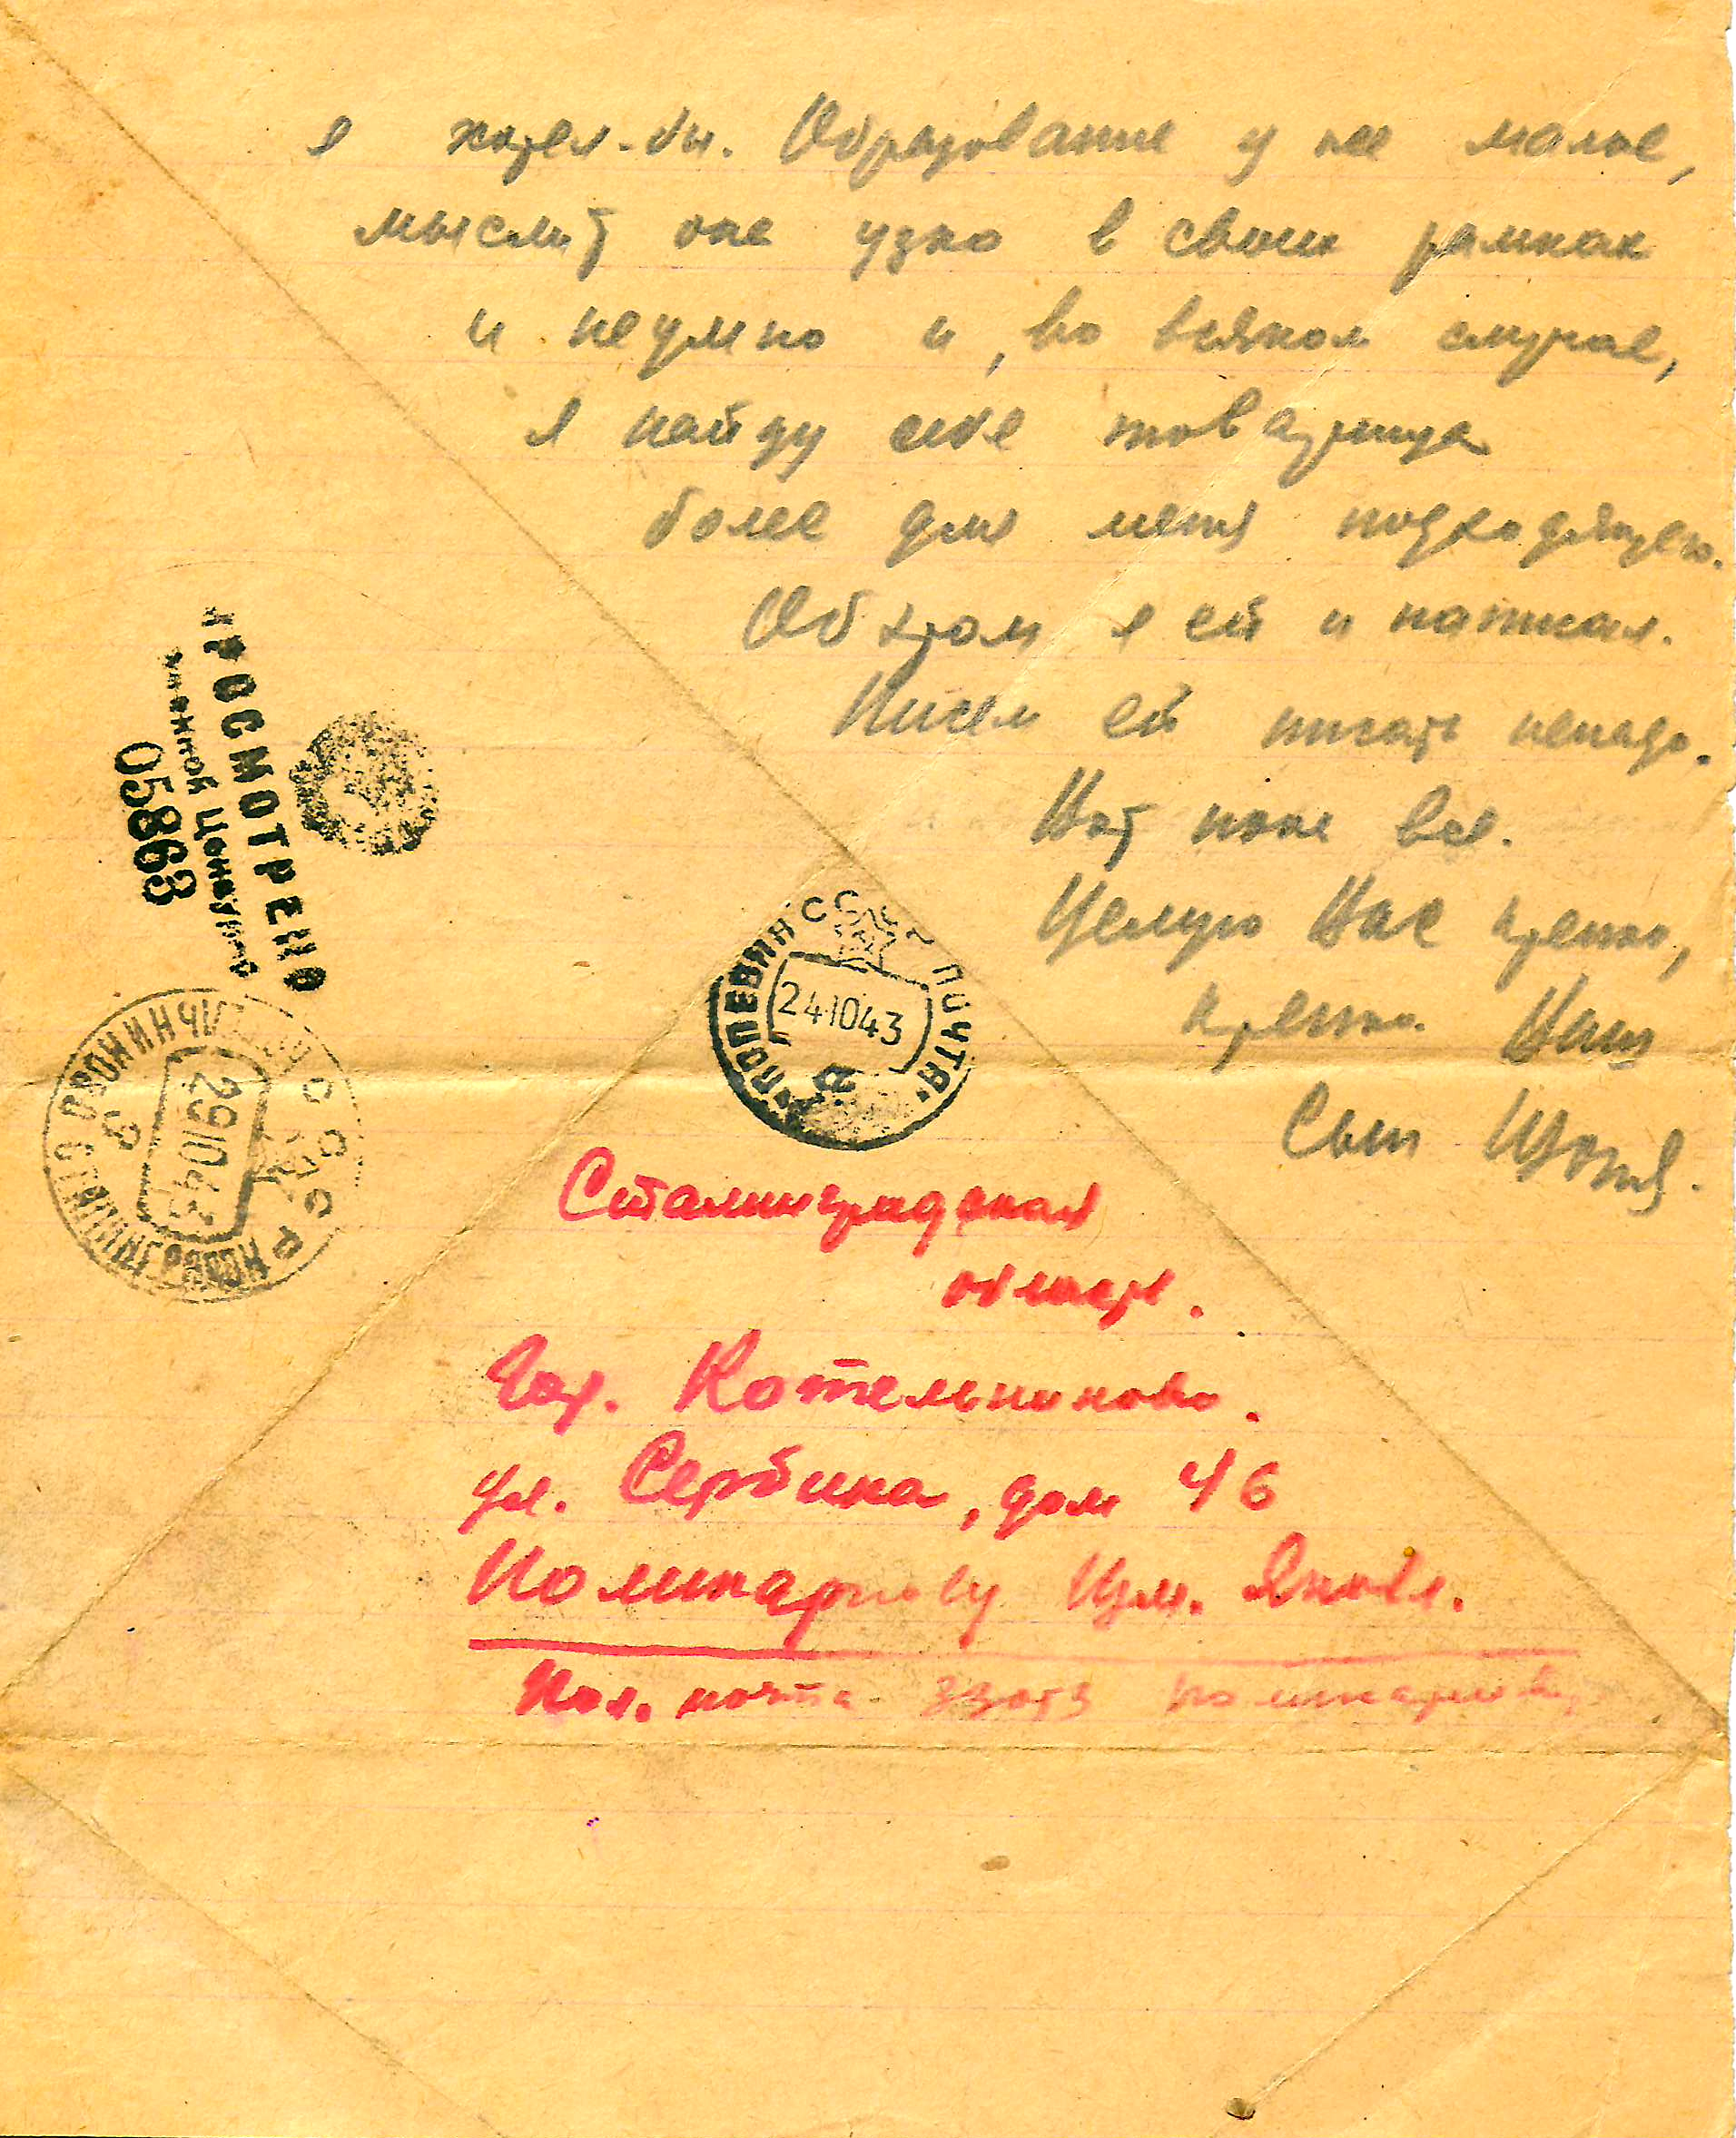 я хотел-бы. Образование у нее малое,
мыслит она узко в своих рамках
и неумно и, во всяком случае,
я найду себе товарища
более для меня подходящего.
Об этом я ей и написал.
Писем ей писать ненадо.
Вот пока все.
Целую Вас крепко,
крепко. Ваш
Сын
ПРОСМОТРЕНО
Военной Цензурой
05863
СССР
ПОЛЕВАЯ ПОЧТА
241043
СССР
291043
СТАЛИНГРАДСКОЙ
Сталинградская
область.
Гор. Котельниково.
ул. Сербина, дом 46
Поликарпову Изм. Яковл.
Пол. почта Поликарпов